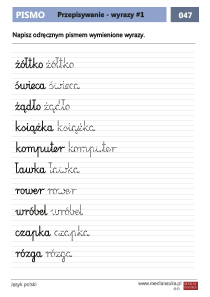 PISMO Przepisywanie - wyrazy #1 047
Napisz odręcznym pismem wymienione wyrazy.
żółtko żółtko
świeca świeca
żądło żądło
książka książka
komputer komputer
ławka ławka
rower rower
wróbel wróbel
czapka czapka
rózga rózga
Język polski www.medianauka.pl